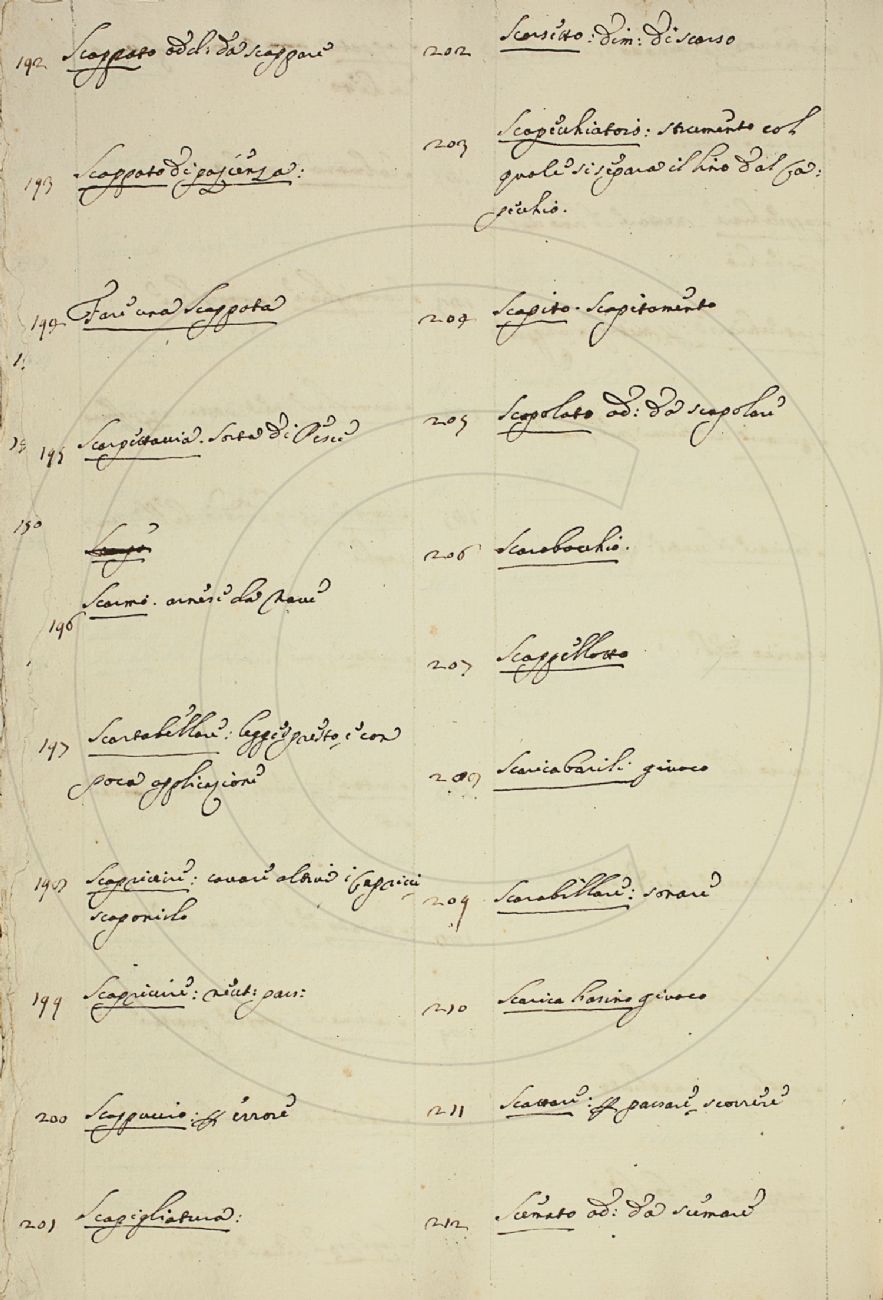 192 Scappato add: da scappare
193 Scappato di pazienza:
194 Fare una Scappata
195 Scarpettaccia. Sorta di Pesce
196 Scarmo. arnese da Nave
197 Scartabellare: legger presto, e con
poca applicazione
198 Scapricciire: cavare altrui i Capricci
199 Scapriccire: neut: pass:
200 Scappuccio: errore
201 Scapigliatura:
202 Scarsetto: dim: di scarso
203 Scapecchiatoio: strumento col
quale si separa il lino dal Ca:
pecchio.
204 Scapito. Scapitamento
205 Scapolato ad: da scapolare
206 Scarabocchio.
207 Scappellotto
208 Scarica barili: giuoco
209 Scarabillare: sonare
210 Scarica lasino giuoco
211 Scattare: passare, scorrere
212 Scemato ad: da scemare